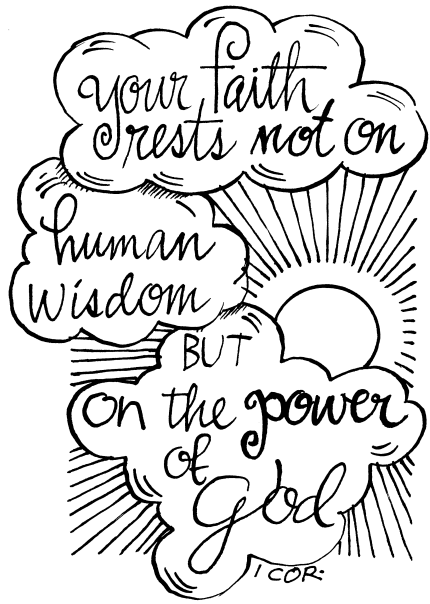 your faith
rests not on
human
wisdom
BUT
on the power
of
God
I COR.